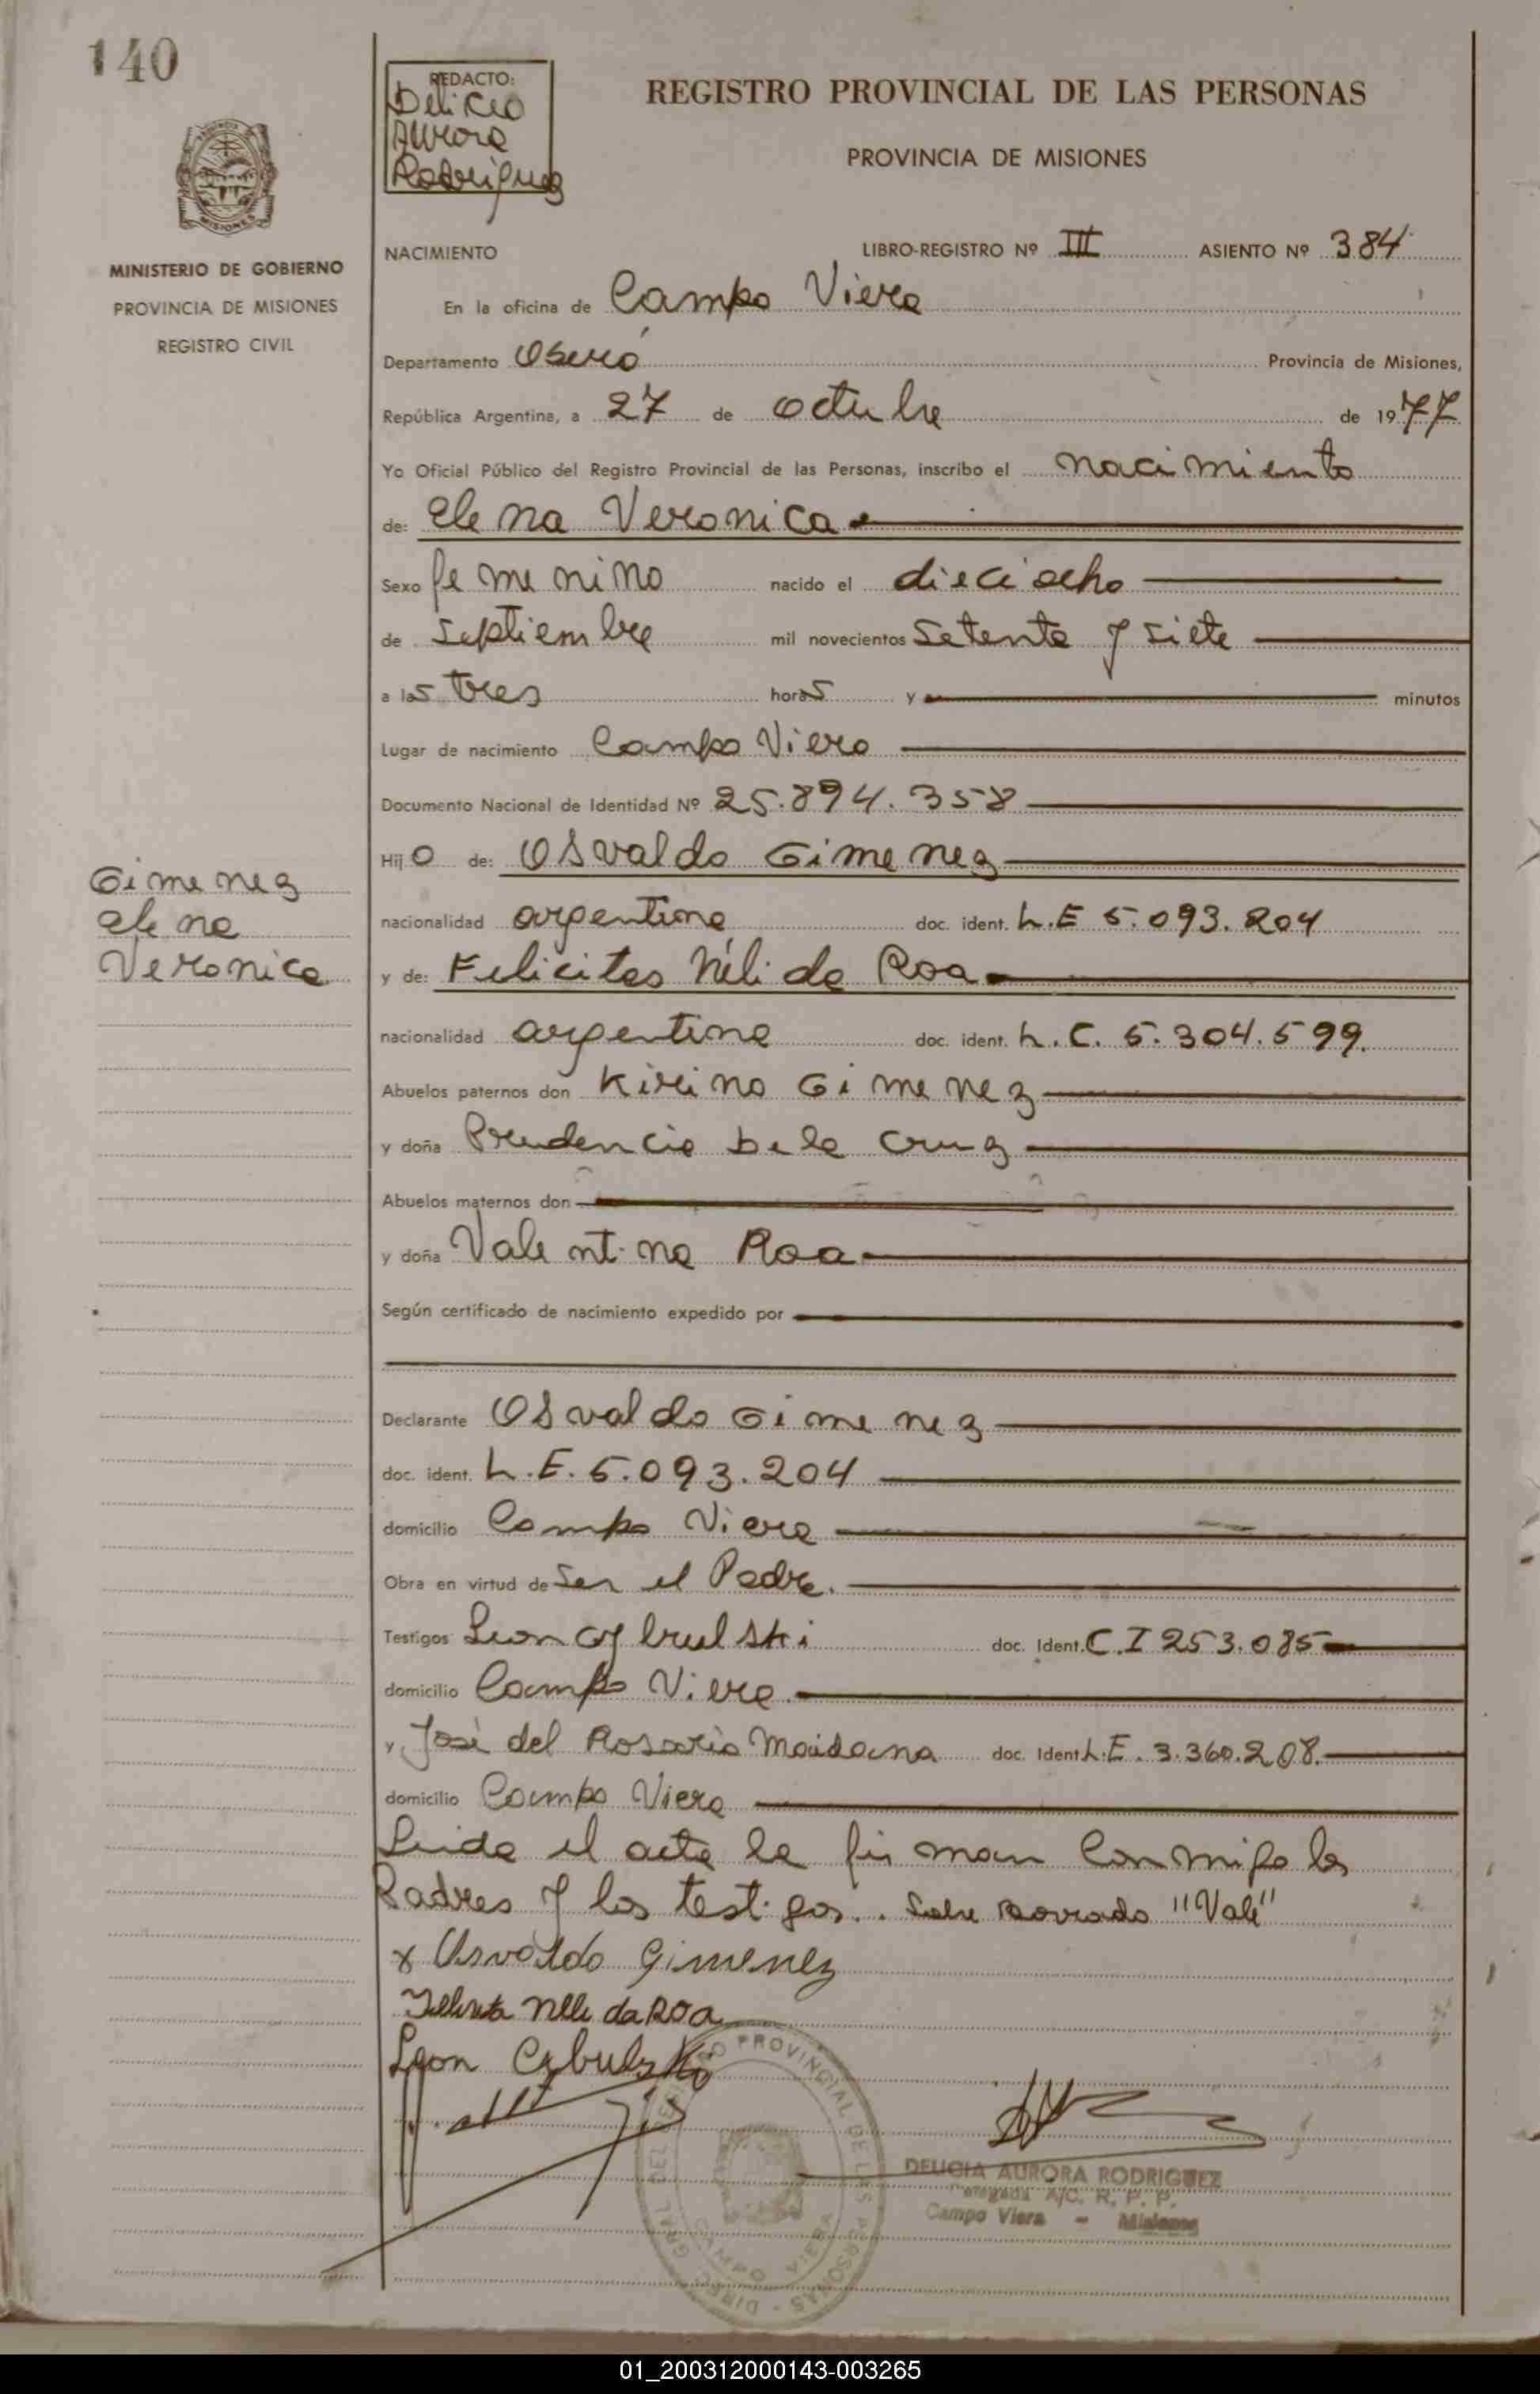 140
REDACTO:
Delicia
Aurora
Rodriguez
REGISTRO PROVINCIAL DE LAS PERSONAS
PROVINCIA DE MISIONES
MISIONES
MINISTERIO DE GOBIERNO
PROVINCIA DE MISIONES
REGISTRO CIVIL
NACIMIENTO LIBRO-REGISTRO Nº III ASIENTO Nº 384
En la oficina de Campo Viera
Departamento Oberá Provincia de Misiones,
República Argentina, a 27 de octubre de 1977
Yo Oficial Público del Registro Provincial de las Personas, inscribo el nacimiento
de: Elena Veronica
Sexo femenino nacido el dieciocho
de septiembre mil novecientos setenta y siete
a las tres horas y minutos
Lugar de nacimiento Campo Viera
Documento Nacional de Identidad Nº 25.894.358
Hijo de: Osvaldo Gimenez
Gimenez
Elena
Veronica
nacionalidad argentina doc. ident. L.E 5.093.204
y de: Felicitas Nélida Roa
nacionalidad argentina doc. ident. L.C. 5.304.599.
Abuelos paternos don Kirino Gimenez
y doña Prudencia De la Cruz
Abuelos maternos don
y doña Valentina Roa
Según certificado de nacimiento expedido por
Declarante Osvaldo Gimenez
doc. ident. L.E. 5.093.204
domicilio Campo Viera
Obra en virtud de ser el Padre.
Testigos Leon Cybulski doc. Ident. C.I 253.085
domicilio Campo Viera
y José del Rosario Maidana doc. Ident L.E. 3.360.208.
domicilio Campo Viera
Leida el acta la firman conmigo los
Padres y los testigos.. Sobre borrado "Vale"
x Osvaldo Gimenez
Nelida Roa
Leon Cybulski
DELICIA AURORA RODRIGUEZ
A/C. R. P. P.
Campo Viera - Misiones
DIREC. GRAL DEL REGISTRO PROVINCIAL DE LAS PERSONAS
CAMPO VIERA
01_200312000143-003265